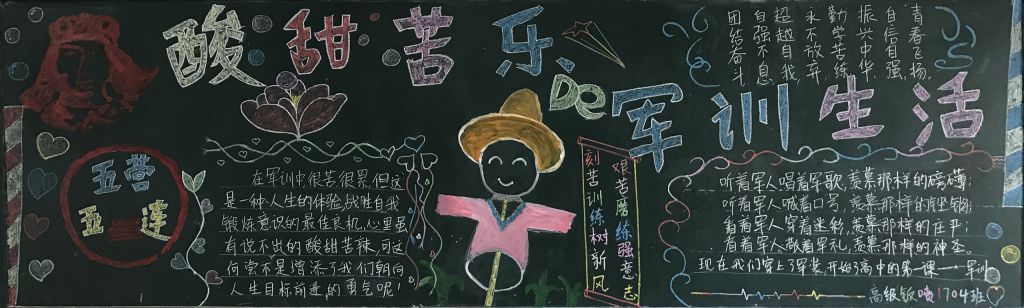 酸甜苦乐
De
军训生活
青春飞扬
自信自强
振兴中华
勤学苦练
永不放弃
超越自我
自强不息
团结奋斗
五营
五连
在军训中很苦很累,但这
是一种人生的体验,战胜自我
锻炼意识的最佳良机,心里虽
有说不出的酸甜苦辣,可这
何尝不是增添了我们朝向
人生目标前进,的勇气呢!
艰苦磨练强意志
刻苦训练树新风
听着军人唱着军歌,羡慕那样的磅礴;
听着军人喊着口号,羡慕那样的
看着军人穿着迷彩,羡慕那样的庄严;
看着军人敬着军礼,羡慕那样的神圣
现在我们穿上了军装开始了高中的第一课——军训
高级 1704班